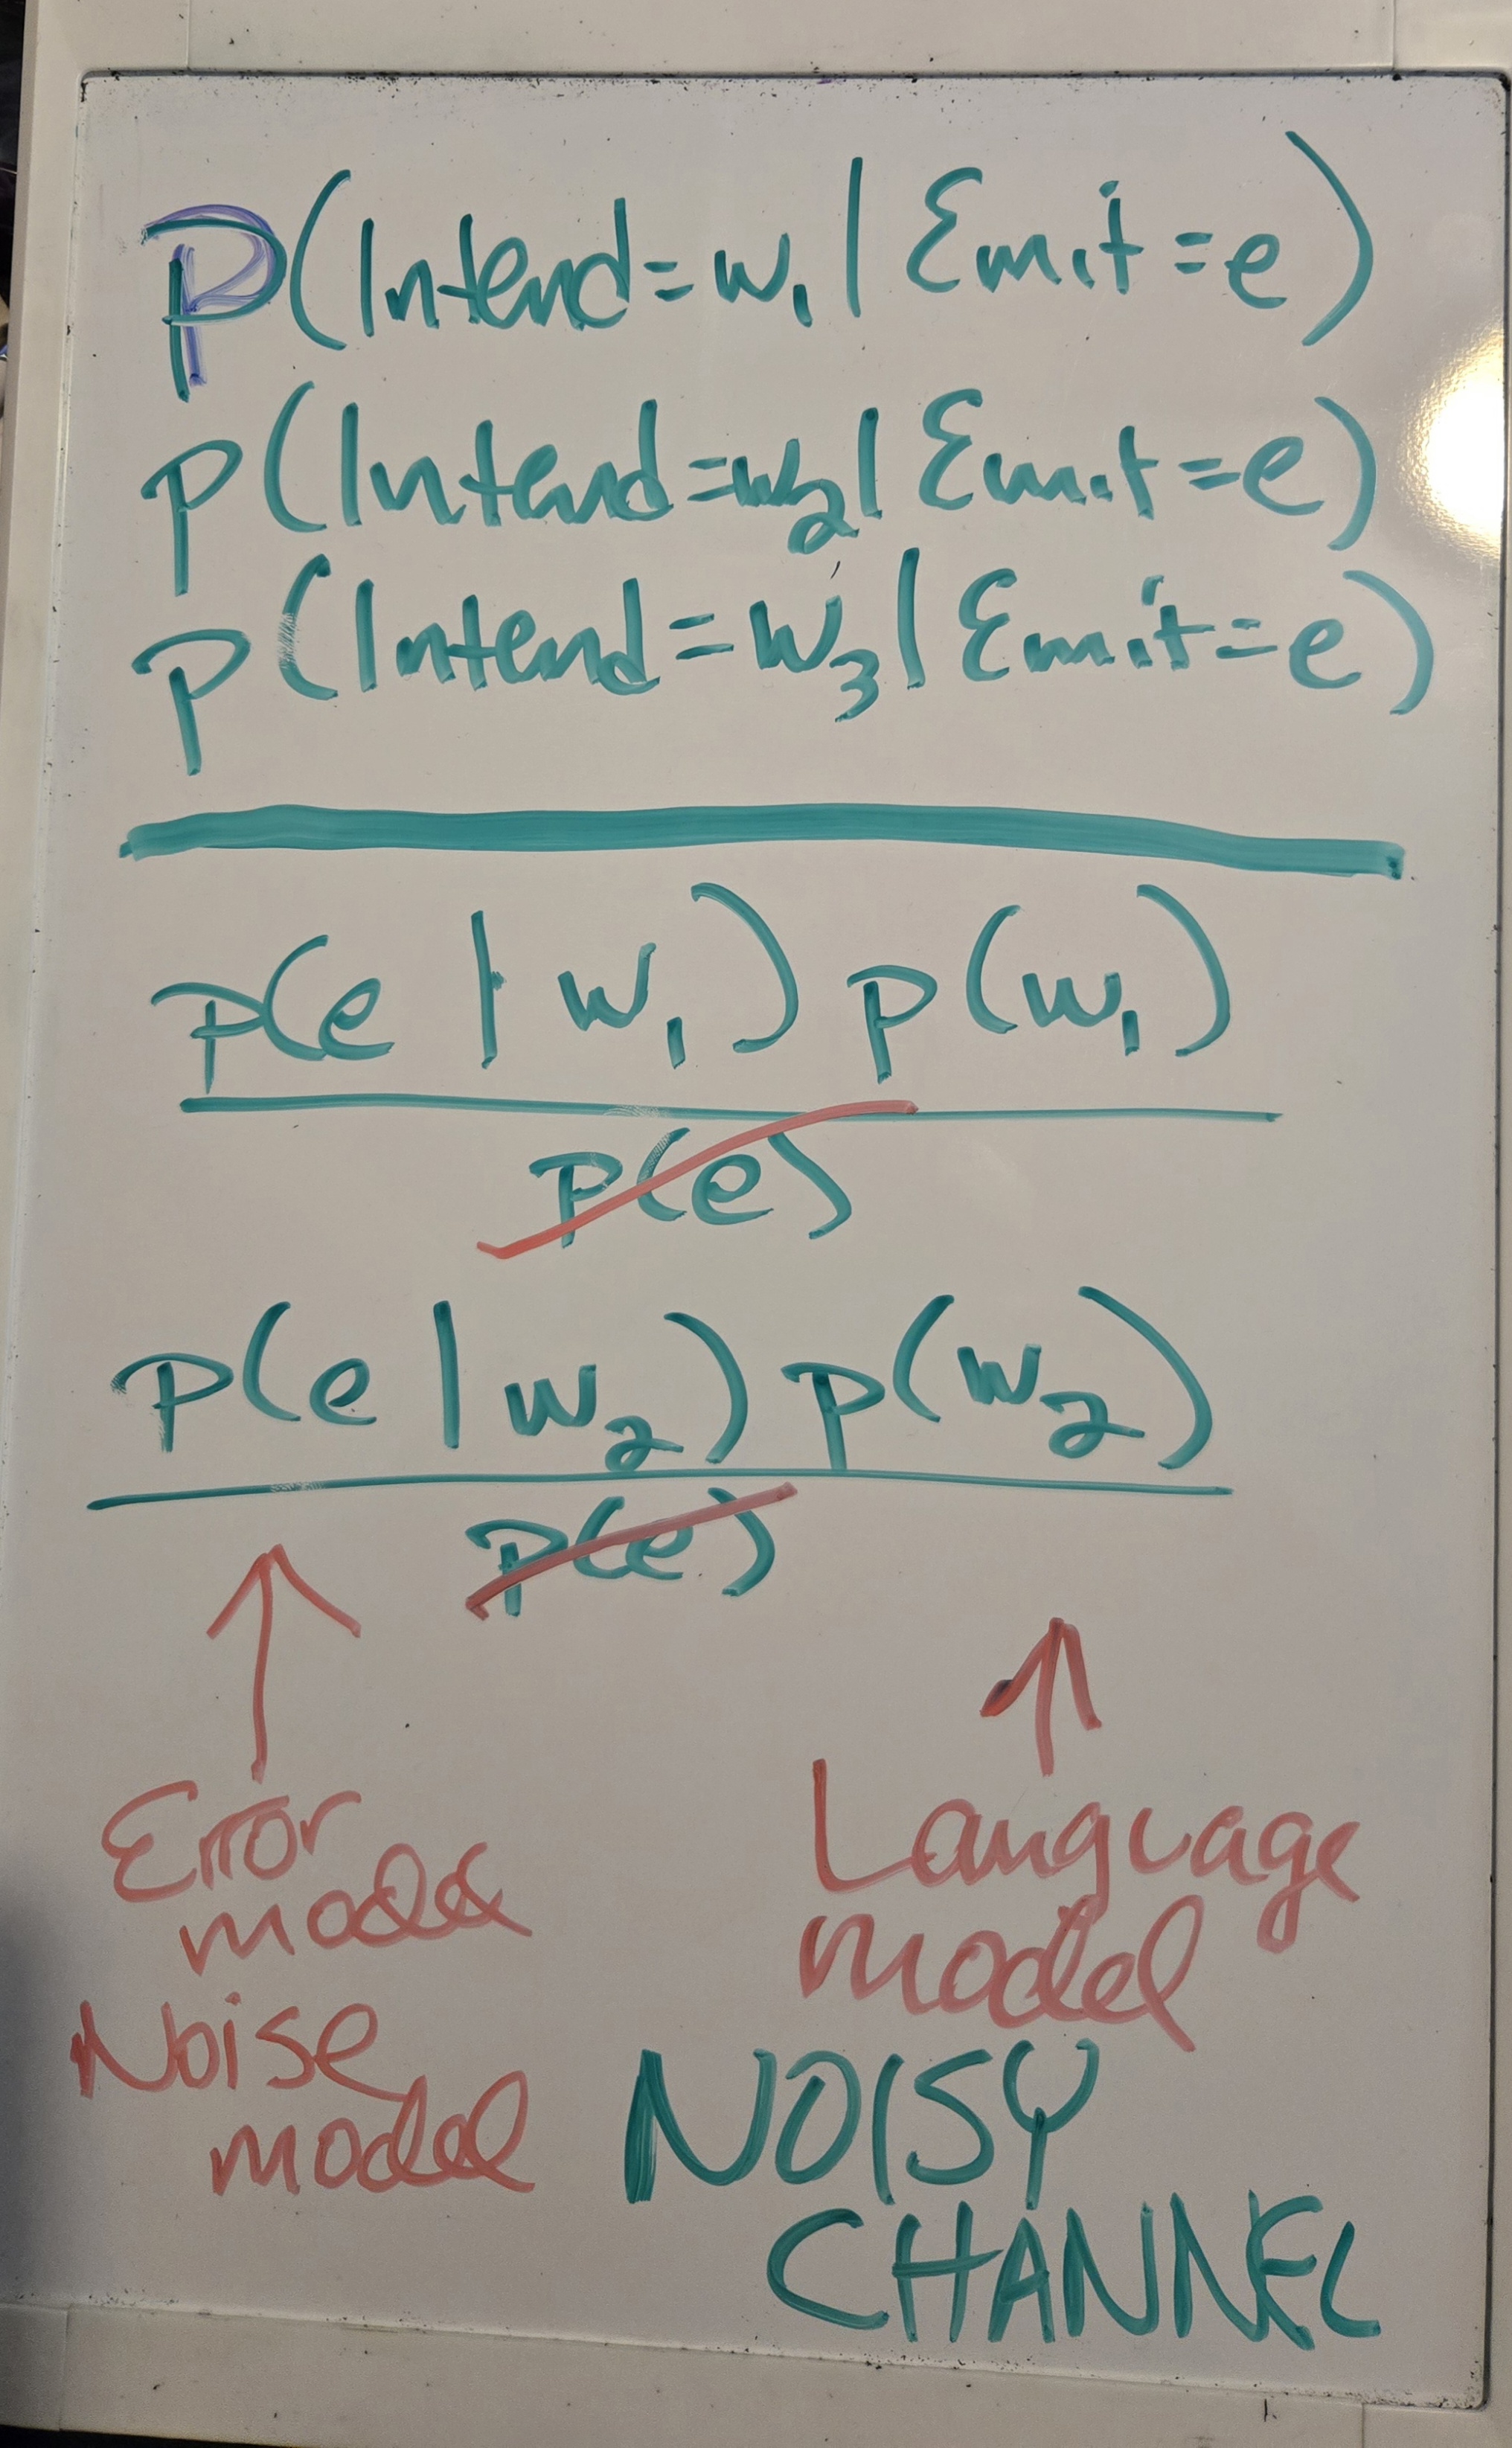 P(Intend=w₁|Emit=e)
P(Intend=w₂|Emit=e)
P(Intend=w₃|Emit=e)
P(e|w₁)p(w₁)
P(e)
P(e|w₂)p(w₂)
P(e)
Error
model
Language
model
Noise
model
NOISY
CHANNEL